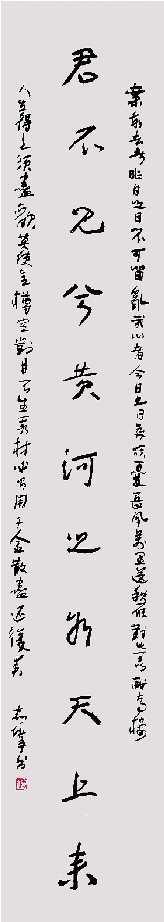 棄我去者昨日之日不可留亂我心者今日之日多煩憂長風萬里送秋雁對此可以酣高樓
君不见兮黄河之水天上来
人生得意須盡歡莫使金樽空對月天生我材必有用千金散盡還復來